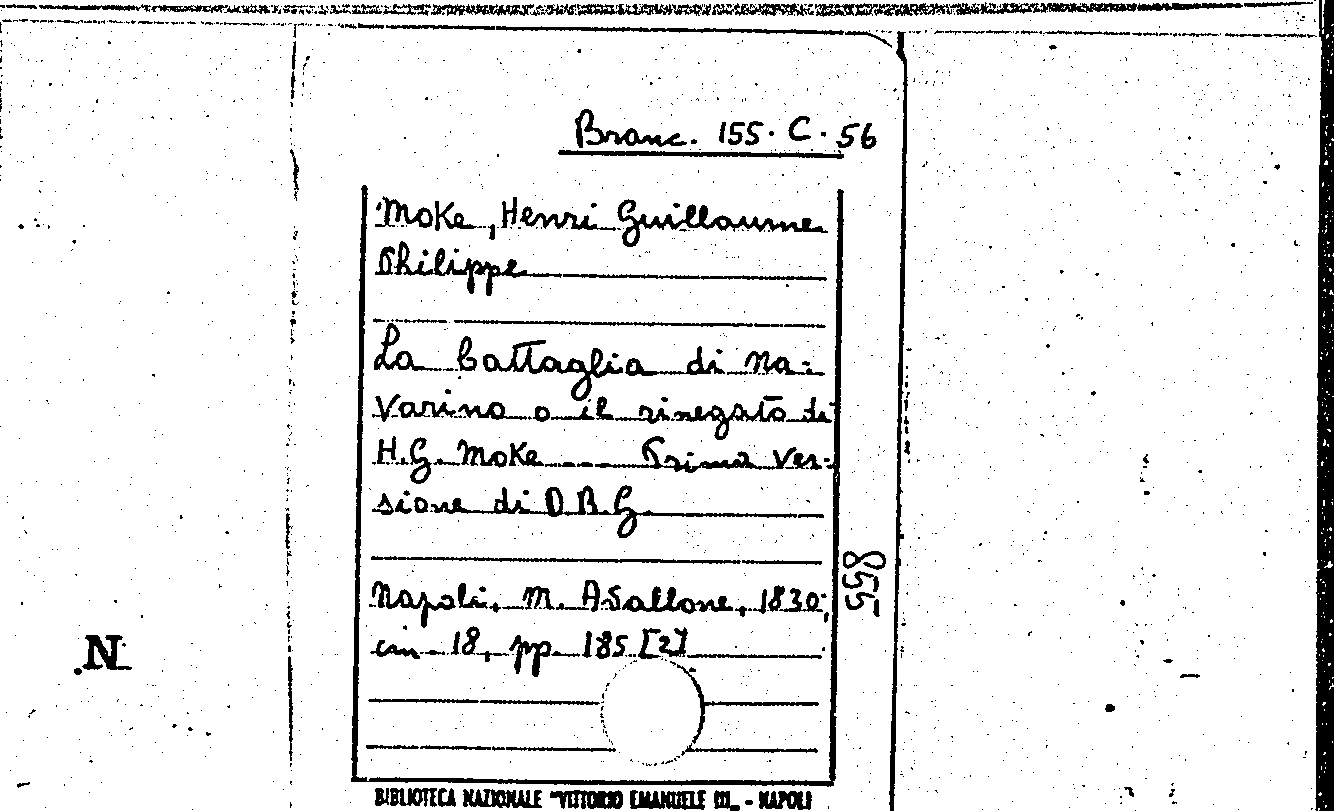 Branc. 155. C. 56
Moke, Henri Guillaume
Philippe
La battaglia di Na=
varino o il rinegato di
H.G. Moke --- Prima ver=
sione di D B.G.
Napoli, M. Avallone, 1830,
in 18, pp. 185 [2]
855
N.
BIBLIOTECA NAZIONALE "VITTORIO EMANUELE III„ - NAPOLI